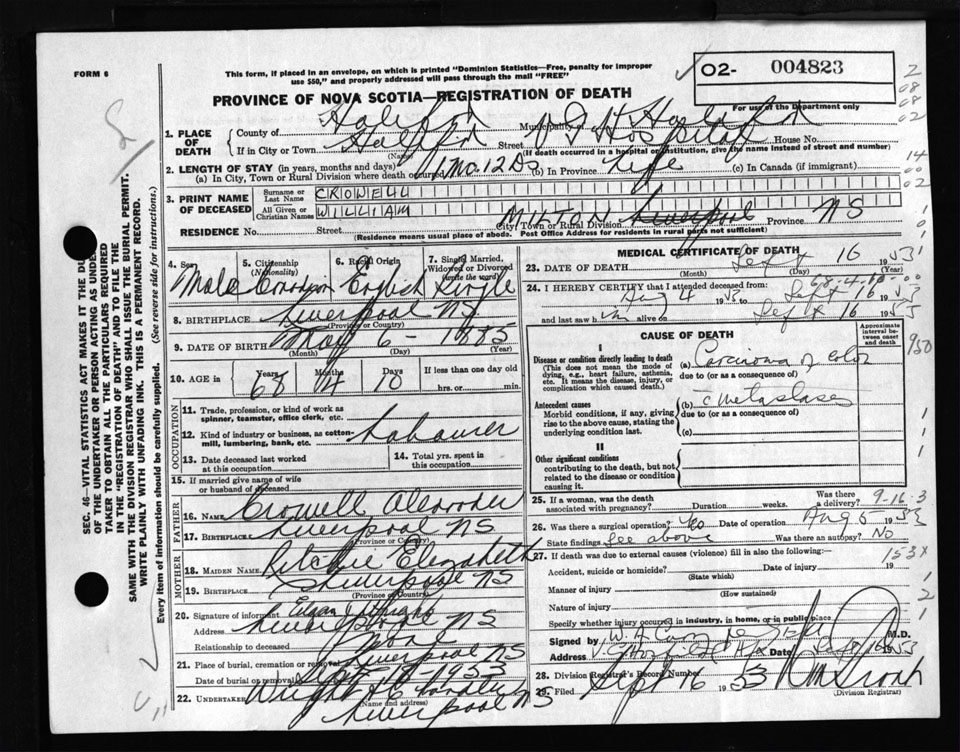 FORM 6
This form, if placed in an envelope, on which is printed "Dominion Statistics—Free, penalty for improper
use $50," and properly addressed will pass through the mail "FREE"
02- 004823
For use of the Department only
PROVINCE OF NOVA SCOTIA—REGISTRATION OF DEATH
1. PLACE OF DEATH
County of Halifax Municipality
If in City or Town Halifax Street V G Hospital House No.
(Name) (If death occurred in a hospital or institution, give the name instead of street and number)
2. LENGTH OF STAY (in years, months and days)
(a) In City, Town or Rural Division where death occurred 1 Mo. 12 Ds (b) In Province Life (c) In Canada (if immigrant)
3. PRINT NAME OF DECEASED
Surname or Last Name CROWELL
All Given or Christian Names WILLIAM
RESIDENCE No. Street MILTON City, Town or Rural Division Liverpool Province NS
(Residence means usual place of abode. Post Office Address for residents in rural parts not sufficient)
4. Sex Male
5. Citizenship (Nationality) Canadian
6. Racial Origin English
7. Single, Married, Widowed or Divorced (write the word) Single
8. BIRTHPLACE Liverpool NS
(Province or Country)
9. DATE OF BIRTH May 6 - 1885
(Month) (Day) (Year)
10. AGE in Years 68 Months 4 Days 10 If less than one day old
hrs. or min.
OCCUPATION
11. Trade, profession, or kind of work as
spinner, teamster, office clerk, etc.
12. Kind of industry or business, as cotton-
mill, lumbering, bank, etc. Labourer
13. Date deceased last worked
at this occupation
14. Total yrs. spent in
this occupation
15. If married give name of wife
or husband of deceased
FATHER
16. NAME Crowell
17. BIRTHPLACE Liverpool NS
(Province or Country)
MOTHER
18. MAIDEN NAME Ritchie Elizabeth
19. BIRTHPLACE Liverpool NS
(Province or Country)
20. Signature of informant
Address Liverpool NS
Relationship to deceased
21. Place of burial, cremation or removal Liverpool NS
Date of burial or removal Sept 1953
22. UNDERTAKER Wright
(Name and address)
Liverpool NS
MEDICAL CERTIFICATE OF DEATH
23. DATE OF DEATH Sept 16 1953
(Month) (Day) (Year)
24. I HEREBY CERTIFY that I attended deceased from:
Aug 4 1953 to Sept 16 1953
and last saw h im alive on Sept 16 1953
CAUSE OF DEATH
Approximate interval between onset and death
I
Disease or condition directly leading to death
(This does not mean the mode of
dying, e.g., heart failure, asthenia,
etc. It means the disease, injury, or
complication which caused death.)
(a) Carcinoma of colon
due to (or as a consequence of)
Antecedent causes
Morbid conditions, if any, giving
rise to the above cause, stating the
underlying condition last.
(b) c metastases
due to (or as a consequence of)
(c)
II
Other significant conditions
contributing to the death, but not
related to the disease or condition
causing it.
25. If a woman, was the death
associated with pregnancy? Duration weeks. Was there a delivery?
9-16-3
26. Was there a surgical operation? Yes Date of operation Aug 5 1953
State findings See above Was there an autopsy? No
27. If death was due to external causes (violence) fill in also the following:—
153X
Accident, suicide or homicide? Date of injury 19
(State which)
Manner of injury
(How sustained)
Nature of injury
Specify whether injury occurred in industry, in home, or in public place
Signed by M.D.
Address Date Sept 16 1953
28. Division Registrar's Record Number
29. Filed Sept 16 1953
(Division Registrar)
SEC. 46—VITAL STATISTICS ACT MAKES IT THE DU
OF THE UNDERTAKER OR PERSON ACTING AS UNDE
TAKER TO OBTAIN ALL THE PARTICULARS REQUIRED
IN THE "REGISTRATION OF DEATH" AND TO FILE THE
SAME WITH THE DIVISION REGISTRAR WHO SHALL ISSUE THE BURIAL PERMIT.
WRITE PLAINLY WITH UNFADING INK. THIS IS A PERMANENT RECORD.
Every item of information should be carefully supplied. (See reverse side for instructions.)